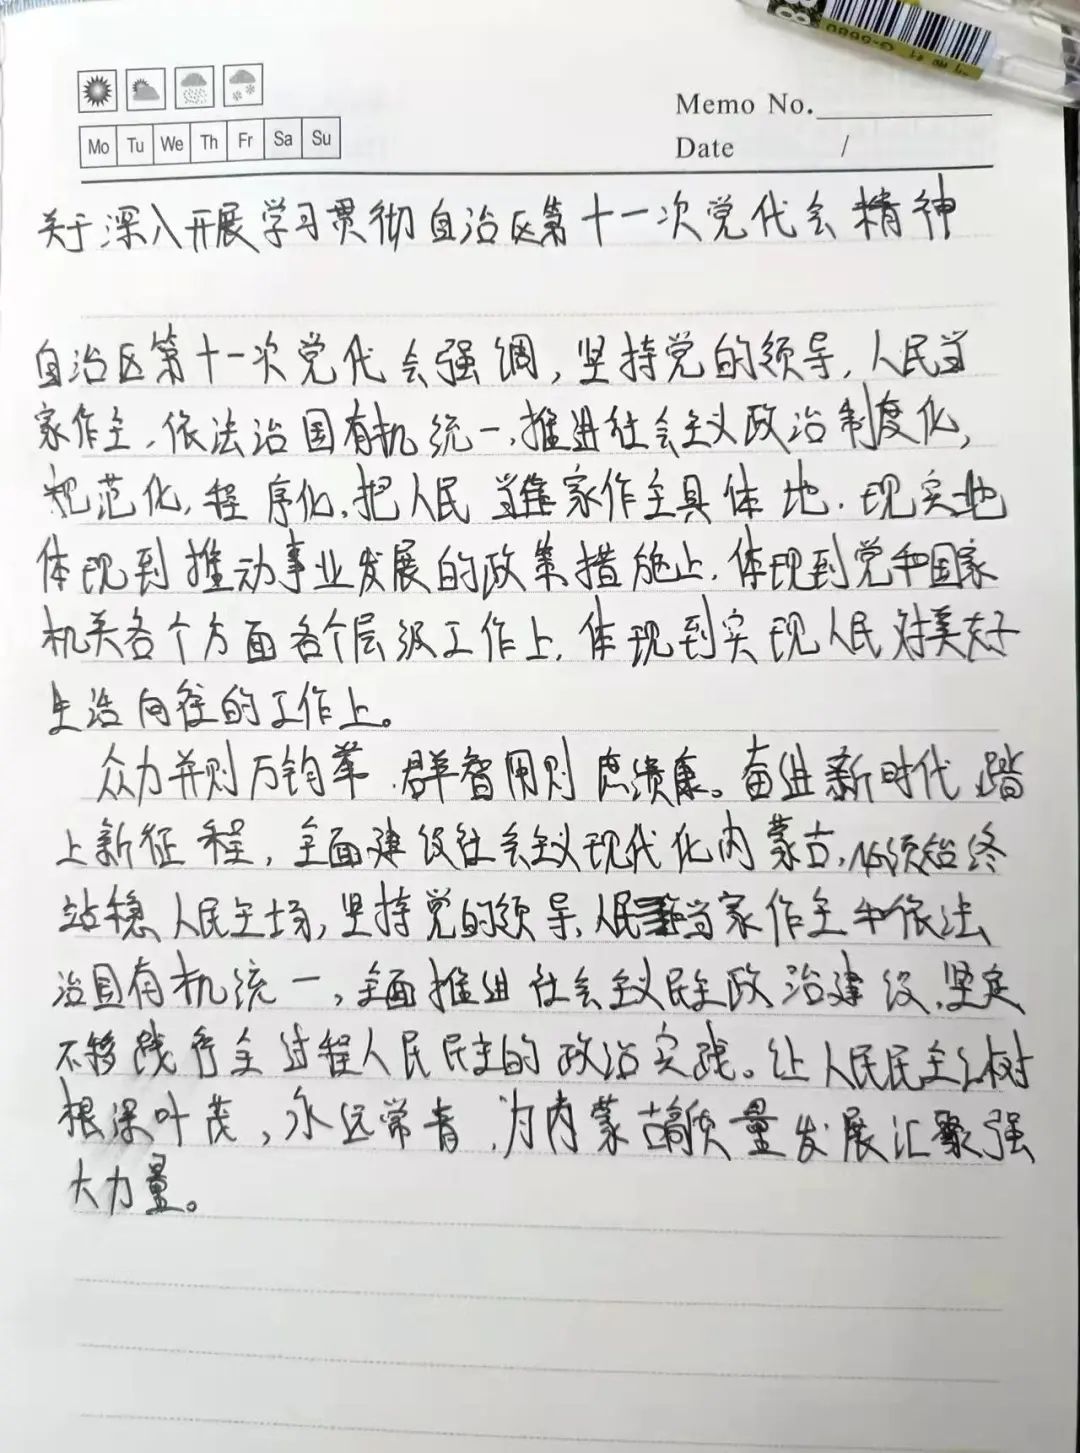 Memo No.
Date /
Mo Tu We Th Fr Sa Su
关于深入开展学习贯彻自治区第十一次党代会精神
自治区第十一次党代会强调,坚持党的领导,人民当
家作主,依法治国有机统一,推进社会主义政治制度化,
规范化,程序化,把人民当家作主具体地.现实地
体现到推动事业发展的政策措施上,体现到党和国家
机关各个方面各个层级工作上,体现到实现人民对美好
生活向往的工作上。
众力并则万钧举,群智用则庶绩康。奋进新时代踏
上新征程,全面建设社会主义现代化内蒙古,必须始终
站稳人民立场,坚持党的领导,人民当家作主和依法
治国有机统一,全面推进社会主义民主政治建设,坚定
不移践行全过程人民民主的政治实践。让人民民主之树
根深叶茂,永远常青,为内蒙古高质量发展汇聚强
大力量。